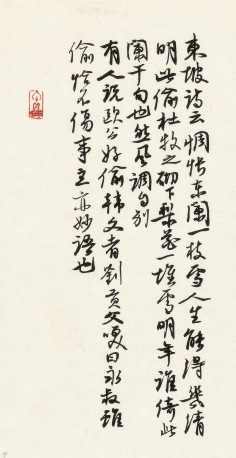 東坡詩云惆悵東闌一枝雪人生能得幾清
明此偷杜牧之砌下梨花一堆雪明年誰倚此
闌干句也然風調自別
有人說歐公好偷韓文者劉貢父咲曰永叔雖
偷恰不傷事主亦妙語也